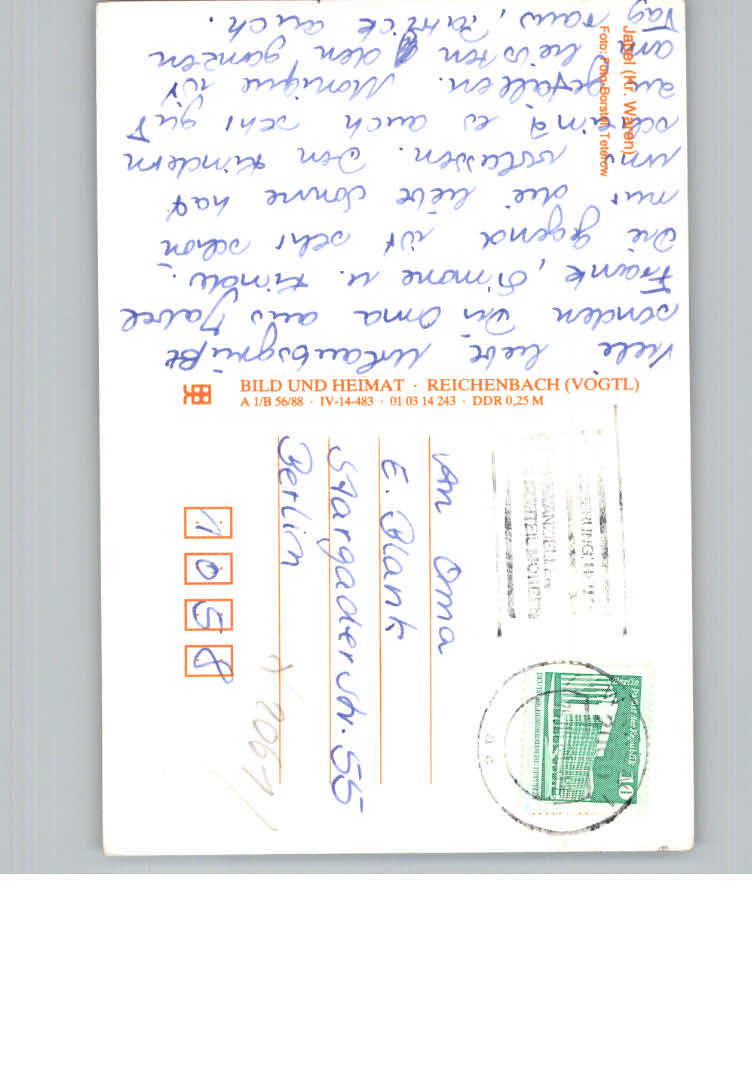 Viele liebe Urlaubsgrüße
senden Dir Oma aus Jabel
Frank, Simone u. Kinder.
Die Gegend ist sehr schön
nur die liebe Sonne hat
uns verlassen. Den Kindern
scheint es auch sehr gut
zu gefallen. Monique ist
am liebsten den ganzen
Tag raus, Patrick auch.
Jabel (Kr. Waren)
Foto: Foto-Borstel, Teterow
BILD UND HEIMAT · REICHENBACH (VOGTL)
A 1/B 56/88 · IV-14-483 · 01 03 14 243 · DDR 0,25 M
An Oma
E. Blank
Stargarder Str. 55
Berlin
1058
Berlin Palast der Republik
10